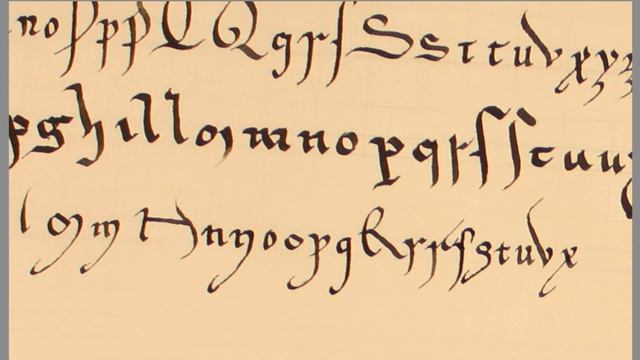 nopppQQqrſSsttuvxyz
pghillommnopqrſſtuu
lommHnnoopqRrrſstuvx